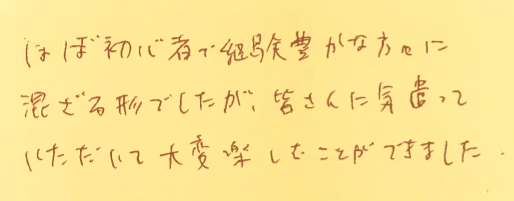 ほぼ初心者で経験豊かな方々に
混ざる形でしたが、皆さんに気遣って
いただいて大変楽しむことができました.